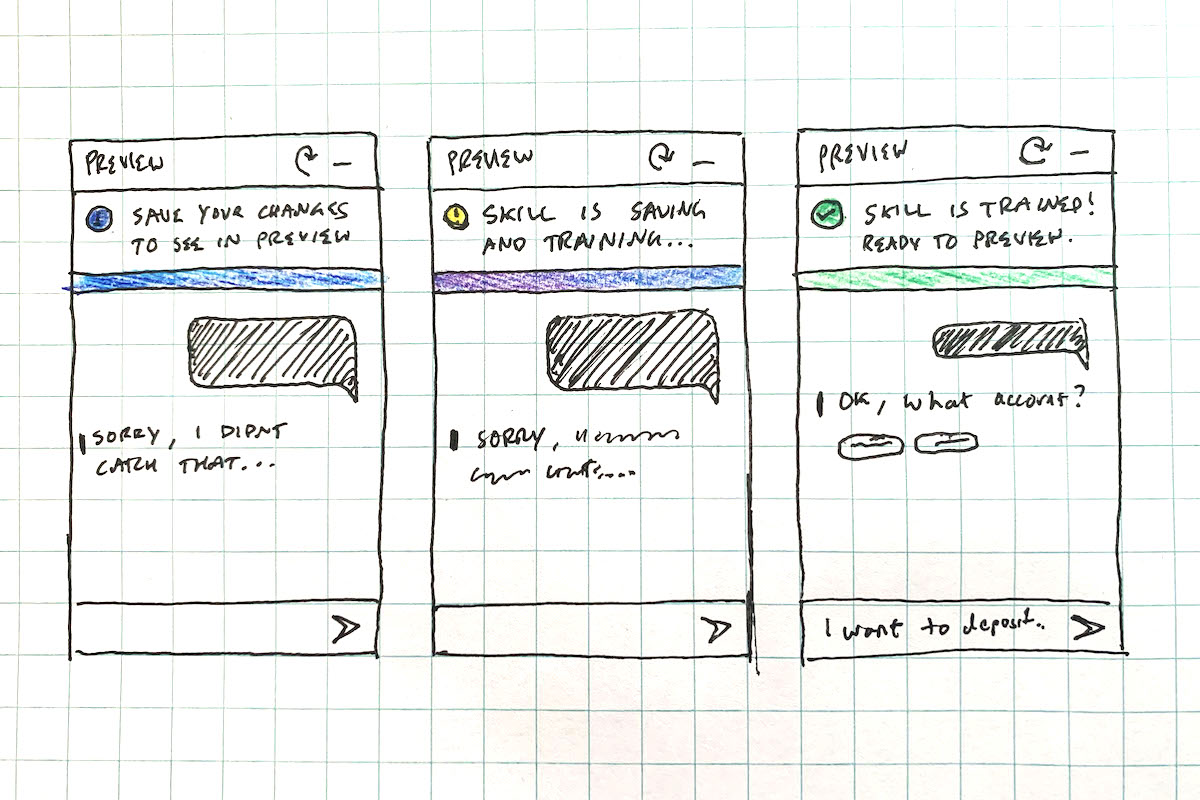 PREVIEW
SAVE YOUR CHANGES
TO SEE IN PREVIEW
SORRY, I DIDNT
CATCH THAT...
PREVIEW
SKILL IS SAVING
AND TRAINING...
SORRY,
PREVIEW
SKILL IS TRAINED!
READY TO PREVIEW.
OK, what account?
I want to deposit..